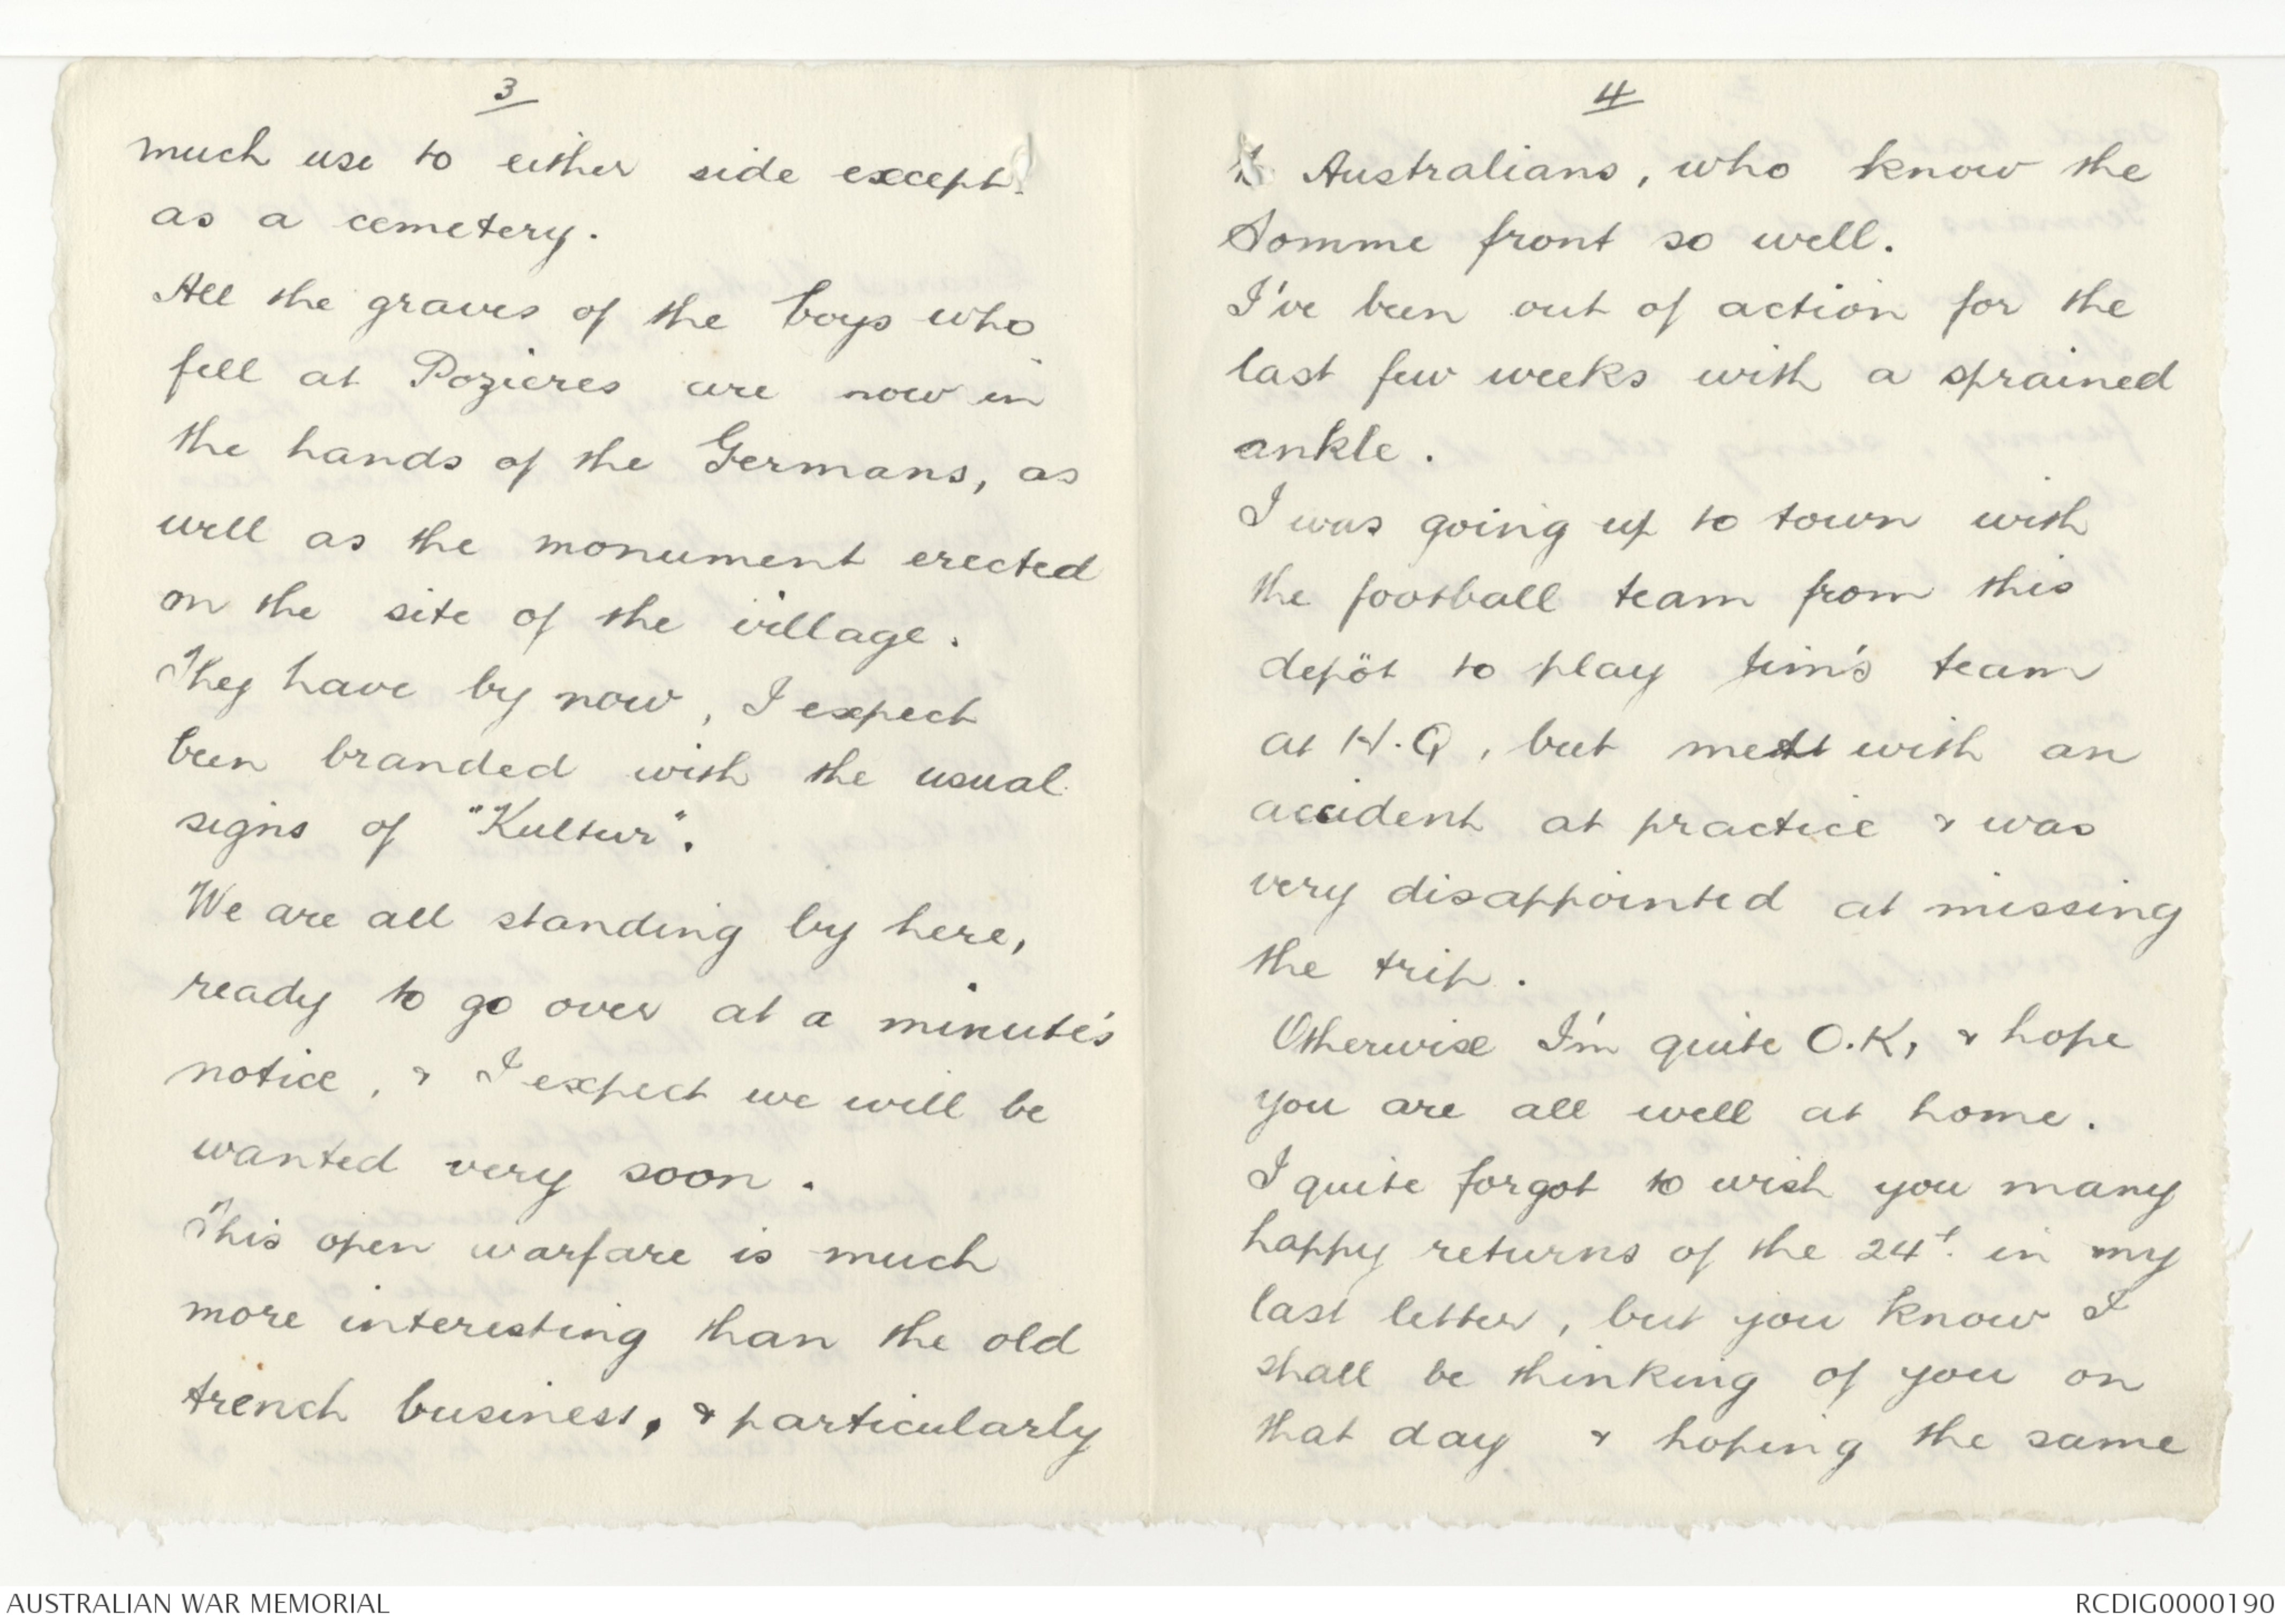 3
much use to either side except
as a cemetery.
All the graves of the boys who
fell at Pozieres are now in
the hands of the Germans, as
well as the monument erected
on the site of the village.
They have by now, I expect
been branded with the usual
signs of "Kultur".
We are all standing by here,
ready to go over at a minute's
notice, & I expect we will be
wanted very soon.
This open warfare is much
more interesting than the old
trench business, & particularly
4
to Australians, who know the
Somme front so well.
I've been out of action for the
last few weeks with a sprained
ankle.
I was going up to town with
the football team from this
depöt to play Jim's team
at H.Q, but mett with an
accident at practice & was
very disappointed at missing
the trip.
Otherwise I'm quite O.K, & hope
you are all well at home.
I quite forgot to wish you many
happy returns of the 24t. in my
last letter, but you know I
shall be thinking of you on
that day & hoping the same
AUSTRALIAN WAR MEMORIAL
RCDIG0000190